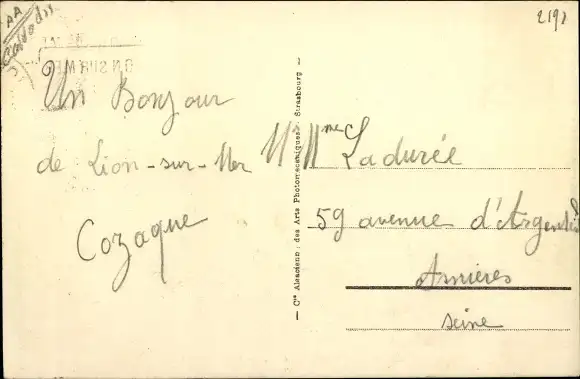 AA
Calvados
2198
Un Bonjour
de Lion-sur-Mer
Cozaque
— Cie Alsacienne des Arts Photomécaniques, Strasbourg —
Mr Mme Ladurée
59 avenue d'Argenteuil
Asnières
Seine